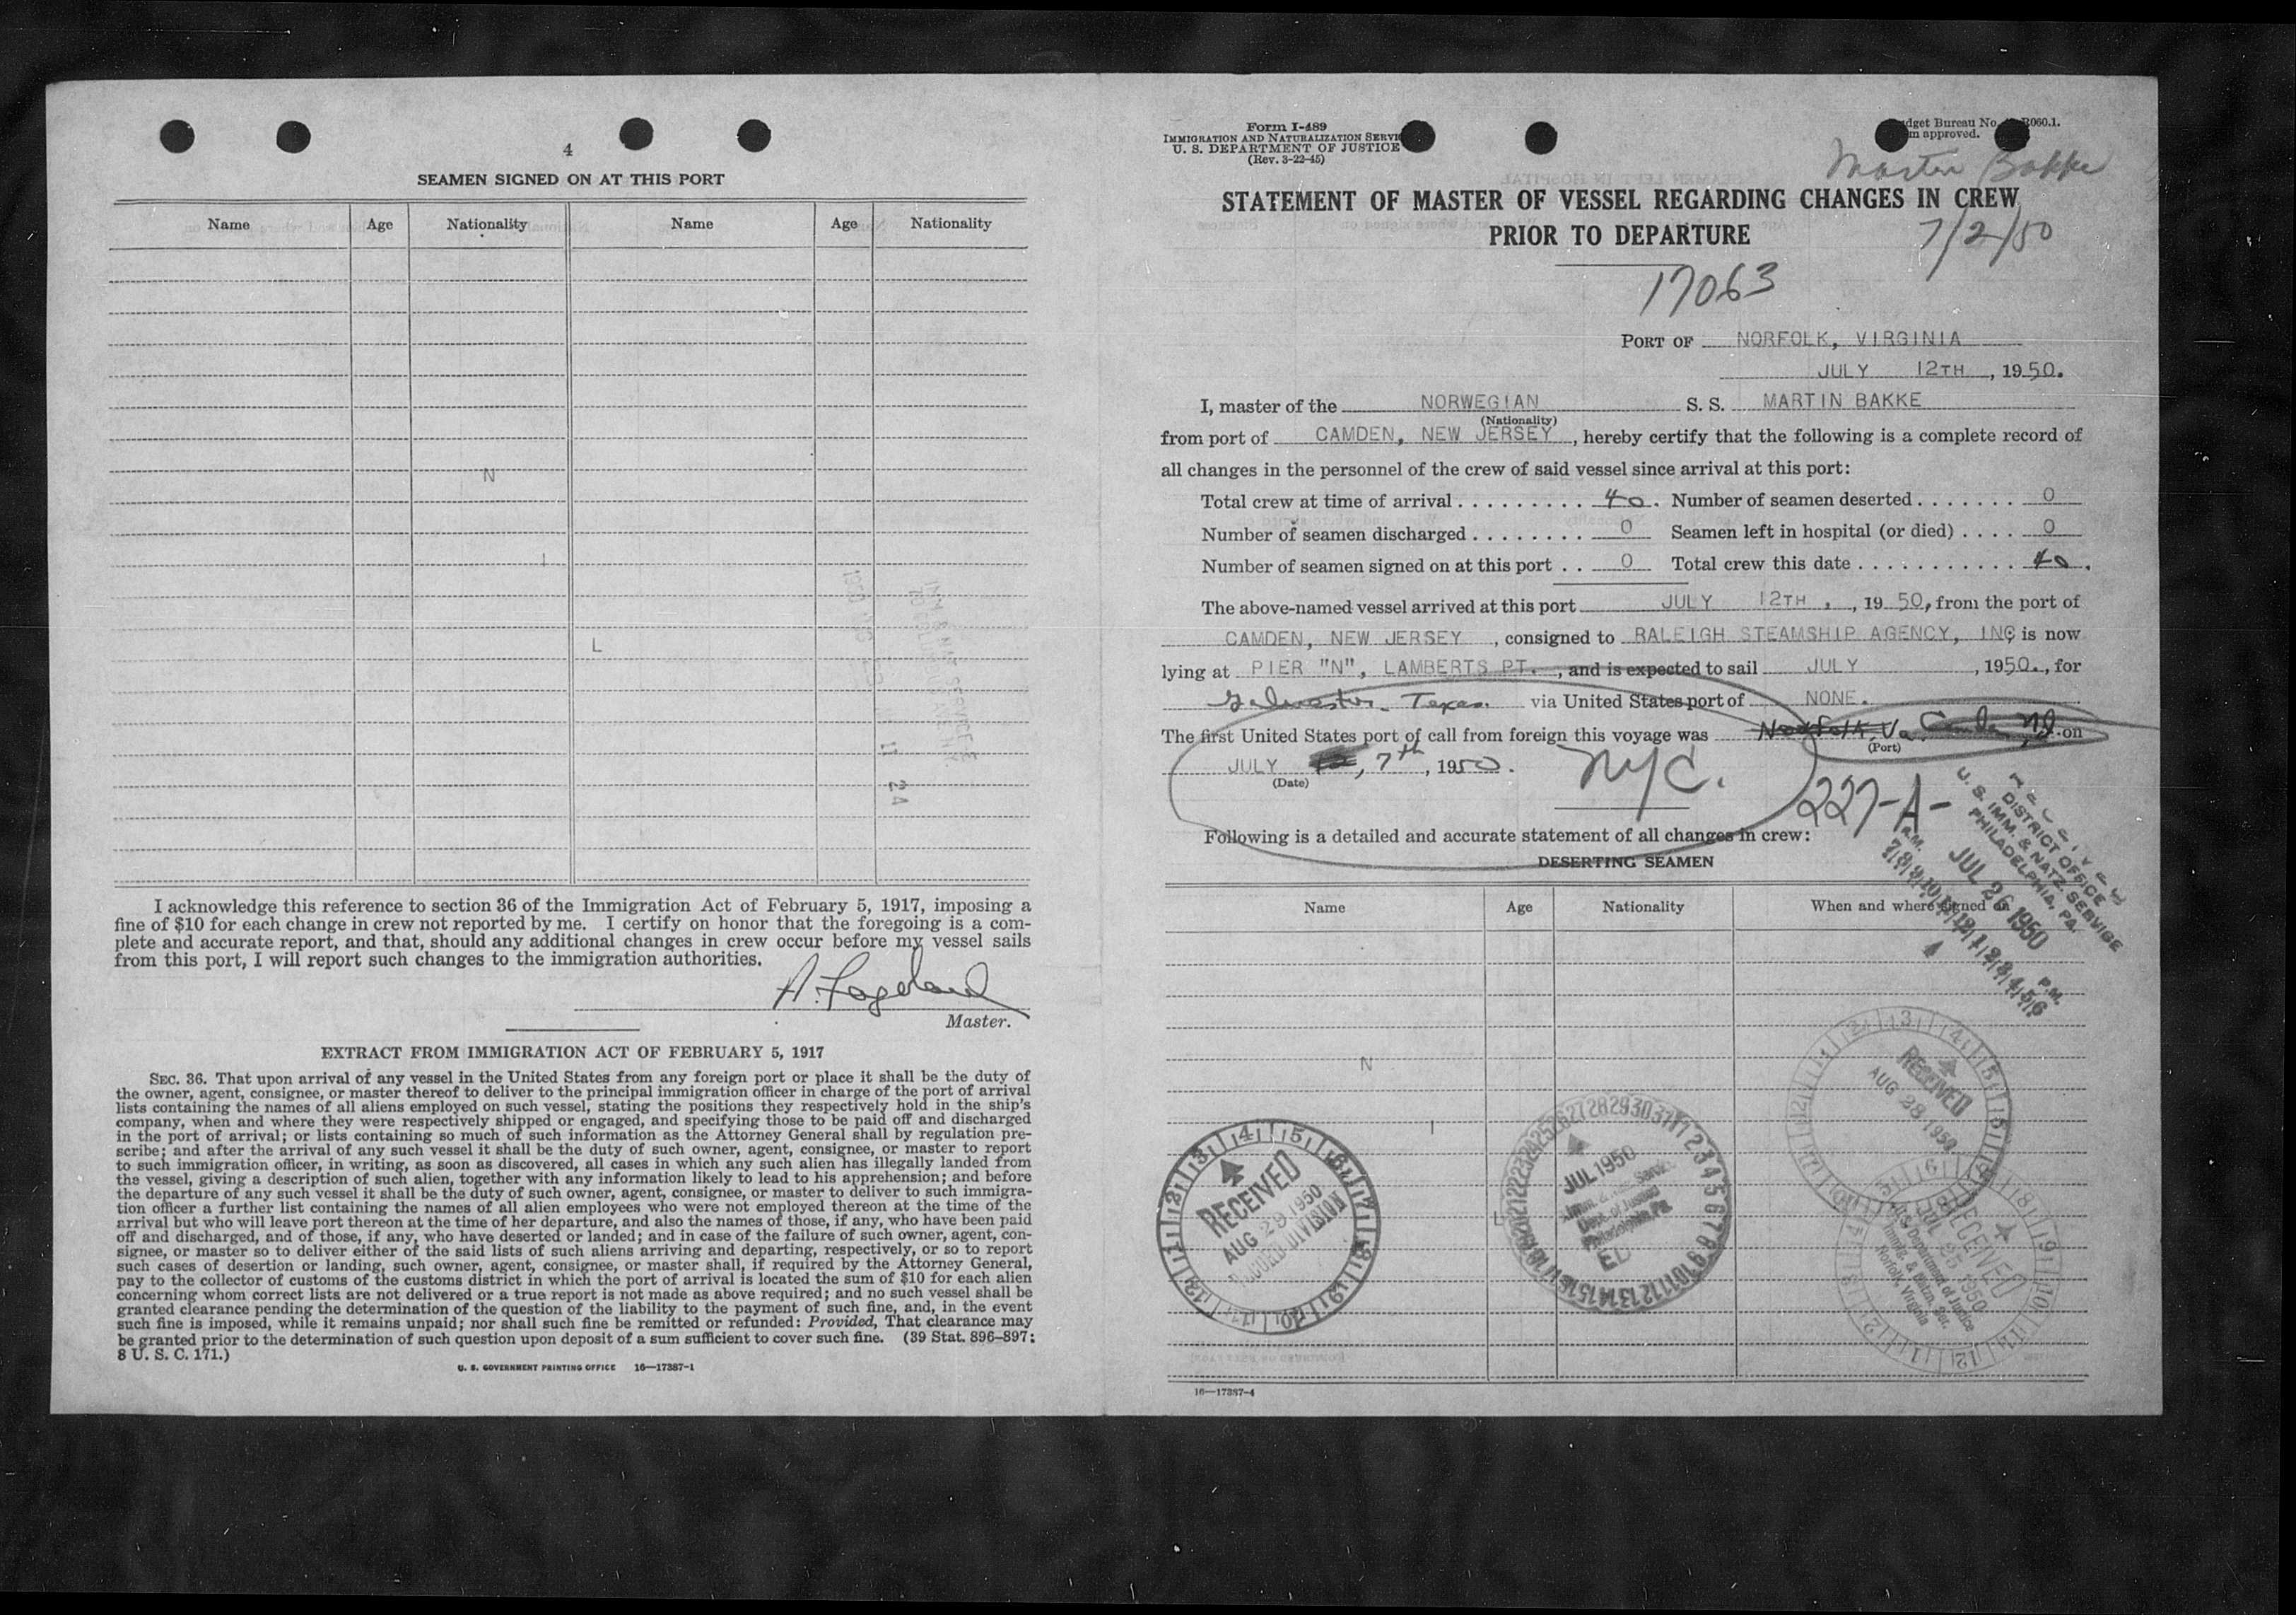 4
SEAMEN SIGNED ON AT THIS PORT
Name Age Nationality Name Age Nationality
N
I
L
I acknowledge this reference to section 36 of the Immigration Act of February 5, 1917, imposing a
fine of $10 for each change in crew not reported by me. I certify on honor that the foregoing is a com-
plete and accurate report, and that, should any additional changes in crew occur before my vessel sails
from this port, I will report such changes to the immigration authorities.
Master.
EXTRACT FROM IMMIGRATION ACT OF FEBRUARY 5, 1917
SEC. 36. That upon arrival of any vessel in the United States from any foreign port or place it shall be the duty of
the owner, agent, consignee, or master thereof to deliver to the principal immigration officer in charge of the port of arrival
lists containing the names of all aliens employed on such vessel, stating the positions they respectively hold in the ship's
company, when and where they were respectively shipped or engaged, and specifying those to be paid off and discharged
in the port of arrival; or lists containing so much of such information as the Attorney General shall by regulation pre-
scribe; and after the arrival of any such vessel it shall be the duty of such owner, agent, consignee, or master to report
to such immigration officer, in writing, as soon as discovered, all cases in which any such alien has illegally landed from
the vessel, giving a description of such alien, together with any information likely to lead to his apprehension; and before
the departure of any such vessel it shall be the duty of such owner, agent, consignee, or master to deliver to such immigra-
tion officer a further list containing the names of all alien employees who were not employed thereon at the time of the
arrival but who will leave port thereon at the time of her departure, and also the names of those, if any, who have been paid
off and discharged, and of those, if any, who have deserted or landed; and in case of the failure of such owner, agent, con-
signee, or master so to deliver either of the said lists of such aliens arriving and departing, respectively, or so to report
such cases of desertion or landing, such owner, agent, consignee, or master shall, if required by the Attorney General,
pay to the collector of customs of the customs district in which the port of arrival is located the sum of $10 for each alien
concerning whom correct lists are not delivered or a true report is not made as above required; and no such vessel shall be
granted clearance pending the determination of the question of the liability to the payment of such fine, and, in the event
such fine is imposed, while it remains unpaid; nor shall such fine be remitted or refunded: Provided, That clearance may
be granted prior to the determination of such question upon deposit of a sum sufficient to cover such fine. (39 Stat. 896–897;
8 U. S. C. 171.)
U. S. GOVERNMENT PRINTING OFFICE 16—17387-1
Form I-489
IMMIGRATION AND NATURALIZATION SERVI
U. S. DEPARTMENT OF JUSTICE
(Rev. 3-22-45)
dget Bureau No. R060.1.
m approved.
Martin Bakke
STATEMENT OF MASTER OF VESSEL REGARDING CHANGES IN CREW
PRIOR TO DEPARTURE
7/2/50
17063
PORT OF NORFOLK, VIRGINIA
JULY 12TH, 1950.
I, master of the NORWEGIAN S. S. MARTIN BAKKE
(Nationality)
from port of CAMDEN, NEW JERSEY, hereby certify that the following is a complete record of
all changes in the personnel of the crew of said vessel since arrival at this port:
Total crew at time of arrival 40. Number of seamen deserted 0
Number of seamen discharged 0 Seamen left in hospital (or died) 0
Number of seamen signed on at this port 0 Total crew this date 40.
The above-named vessel arrived at this port JULY 12TH, 1950, from the port of
CAMDEN, NEW JERSEY, consigned to RALEIGH STEAMSHIP AGENCY, INC is now
lying at PIER "N", LAMBERTS PT., and is expected to sail JULY, 1950., for
Galveston Texas. via United States port of NONE.
The first United States port of call from foreign this voyage was Norfolk, Va. Camden NJ. on
(Port)
JULY 7th, 1950. NYC.
(Date)
227-A-
Following is a detailed and accurate statement of all changes in crew:
DESERTING SEAMEN
Name Age Nationality When and where signed on
RECEIVED
DISTRICT OFFICE
U. S. IMM. & NATZ. SERVICE
PHILADELPHIA, PA.
JUL 26 1950
A.M. 7 8 9 10 11 12 1 2 3 4 5 6 P.M.
N
I
L
RECEIVED
AUG 29 1950
RECORD DIVISION
JUL 1950
Imm. & Nat. Service
Dept. of Justice
Philadelphia, Pa.
RECEIVED
AUG 28 1950
RECEIVED
JUL 25 1950
U. S. Department of Justice
Immig. & Natzn. Ser.
Norfolk, Virginia
16—17387-4